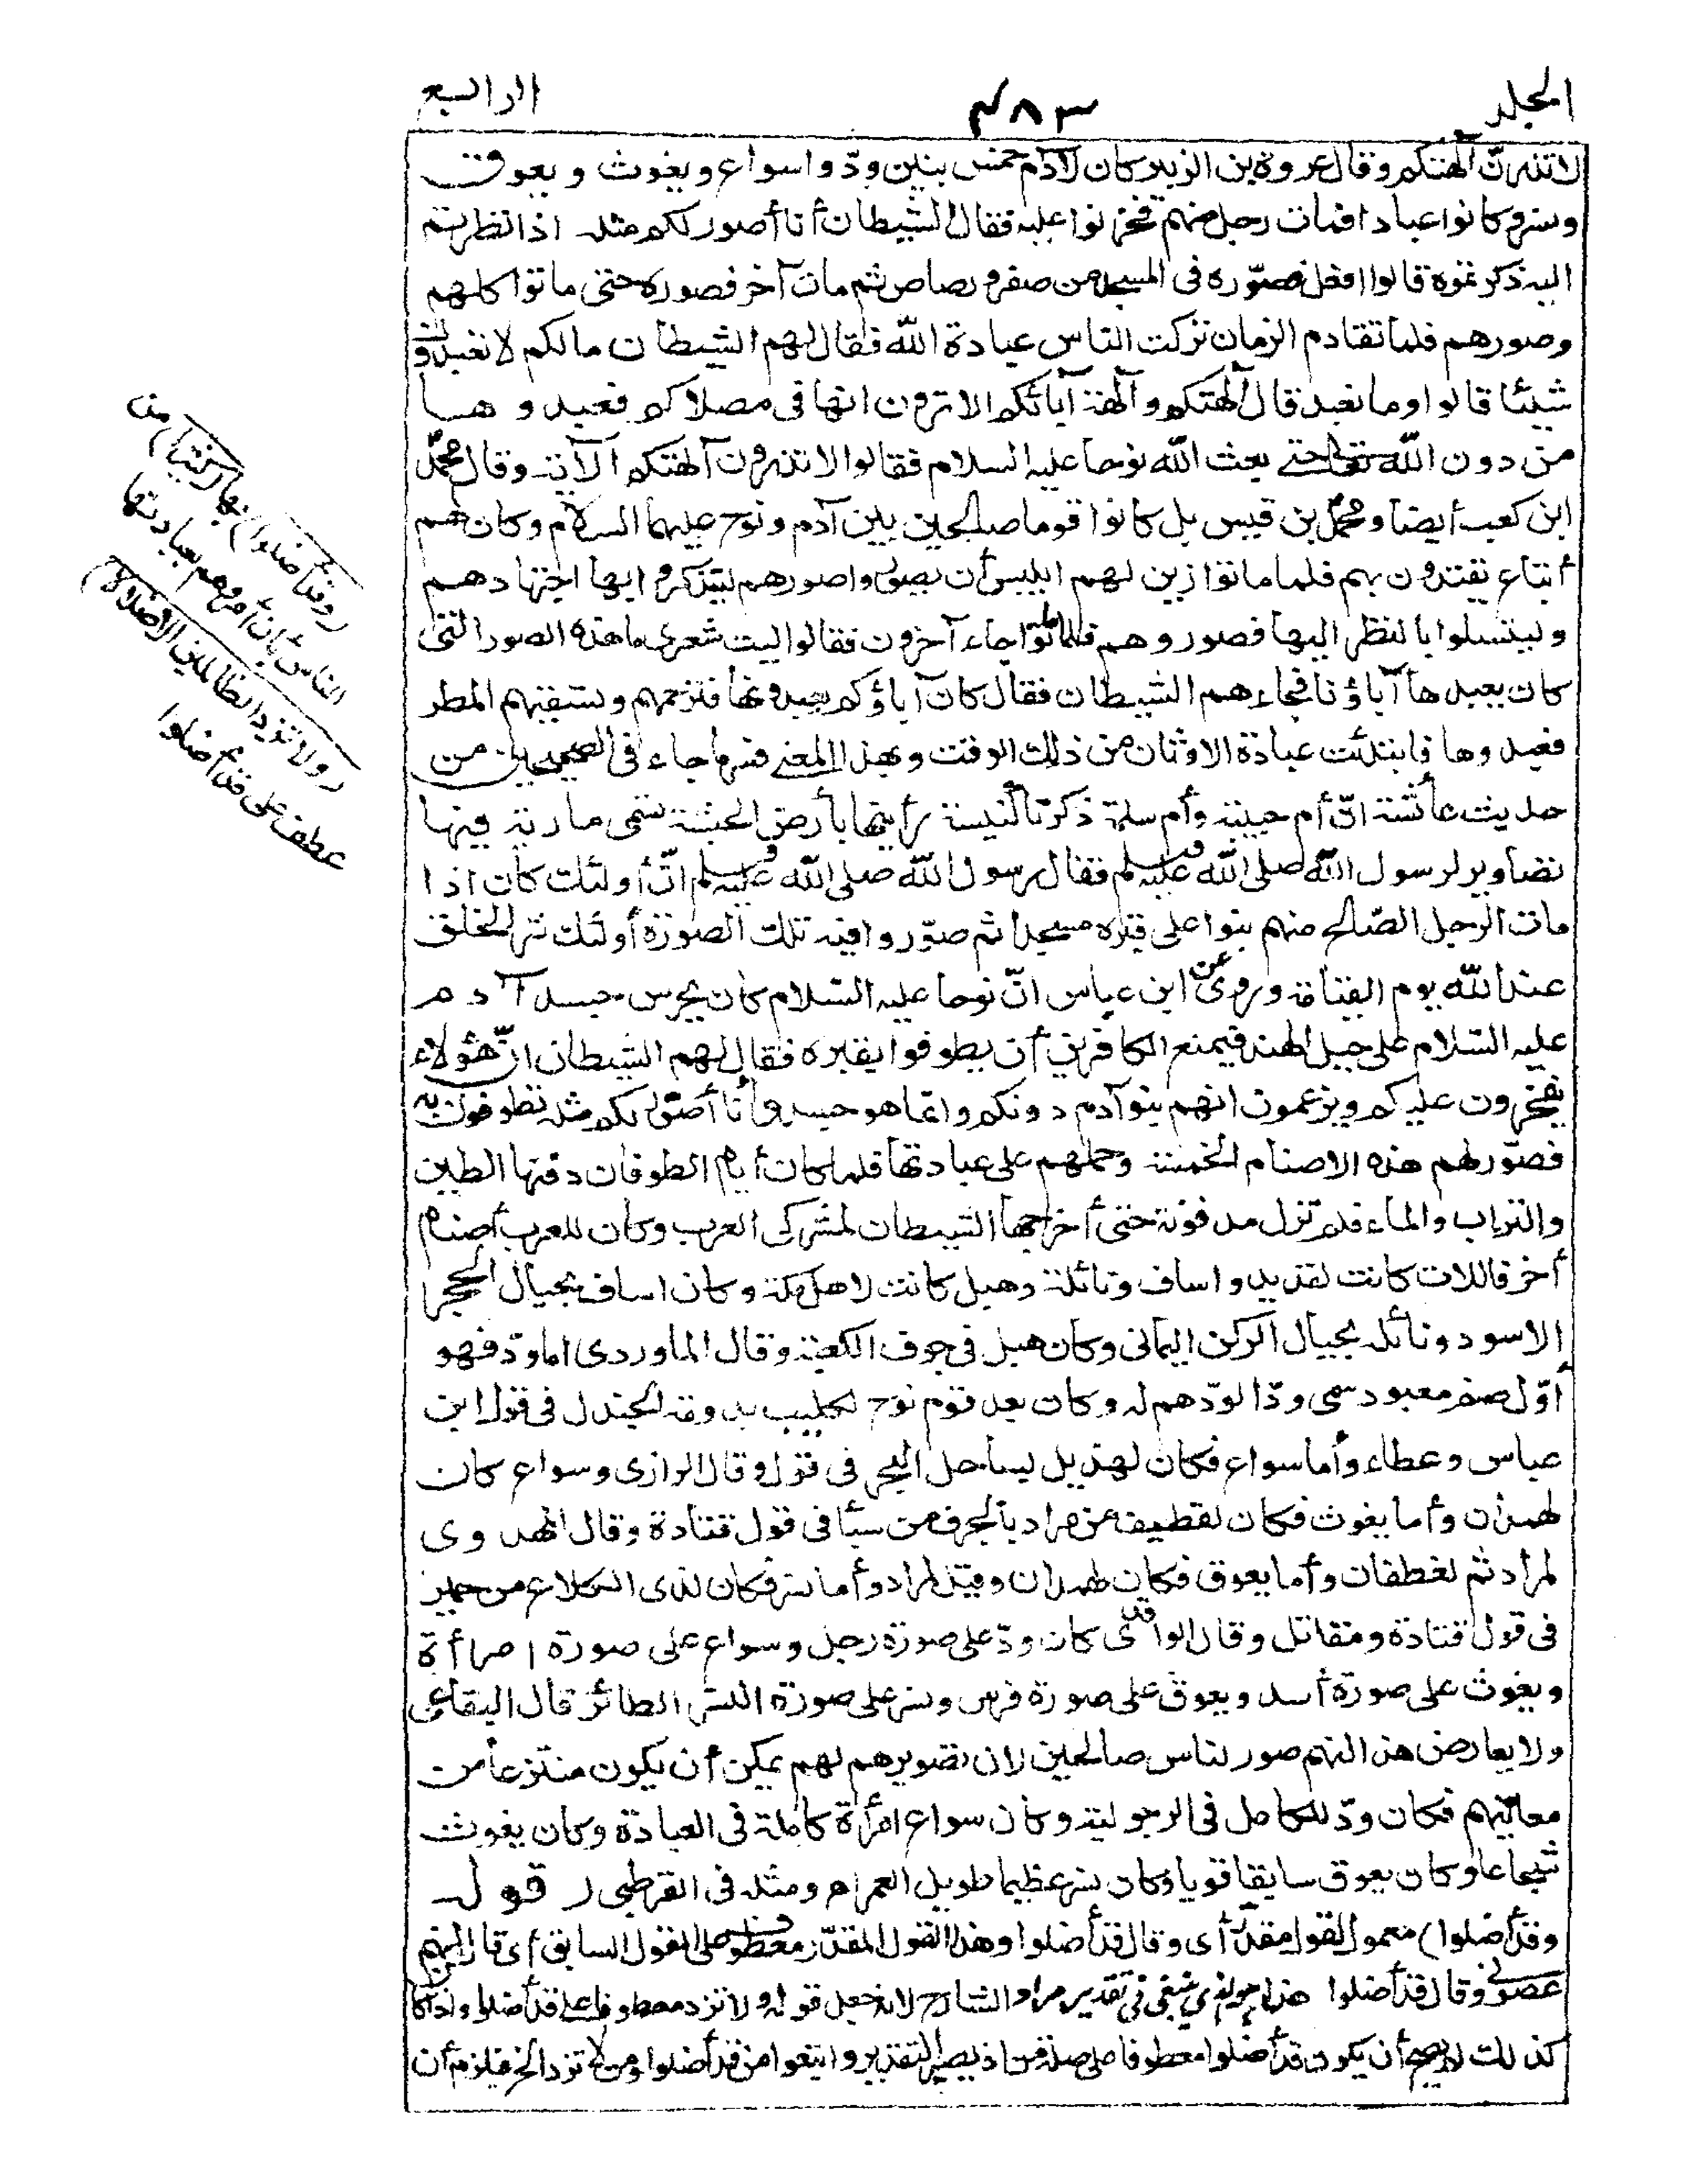 المجلد ٤٨٣ الرابع
لا تذرن آلهتكم وقال عروة بن الزبير كان لآدم خمس بنين ود و اسواع و يغوث و يعوق
ونسر وكانوا عبادا فمات رجل منهم فحزنوا عليه فقال الشيطان أنا أصور لكم مثله اذا نظرتم
اليه ذكرتموه قالوا افعل فصوّره فى المسجد من صفر و رصاص ثم مات آخر فصوره حتى ماتوا كلهم
وصورهم فلما تقادم الزمان تركت الناس عبادة الله فقال لهم الشيطان مالكم لا تعبدون
شيئا قالوا وما نعبد قال آلهتكم و آلهة آبائكم الا ترون انها فى مصلاكم فعبد و هسا
من دون الله تعالى حتى بعث الله نوحا عليه السلام فقالوا لا تذرون آلهتكم الآية وقال محمّد
ابن كعب أيضا و محمّد بن قيس بل كانوا قوما صالحين بين آدم ونوح عليهما السلام وكان لهم
أتباع يقتدون بهم فلما ماتوا زين لهم ابليس أن يصوروا صورهم ليتذكروا بها اجتهادهم
و ليتسلوا بالنظر اليها فصوروهم فلما ماتوا جاء آخرون فقالوا ليت شعرى ما هذه الصور التى
كان يعبدها آباؤنا فجاءهم الشيطان فقال كان آباؤكم يعبدونها فترحمهم وتسقيهم المطر
فعبدوها فابتدئت عبادة الاوثان من ذلك الوقت و بهذا المعنى فسر ما جاء فى الصحيحين من
حديث عائشة انّ أم حبيبة وأم سلمة ذكرتا كنيسة رأينها بأرض الحبشة تسمى مارية فيها
تصاوير لرسول الله صلى الله عليه وسلم فقال رسول الله صلى الله عليه وسلم انّ أولئك كان اذا
مات الرجل الصّالح منهم بنوا على قبره مسجدا ثم صوّروا فيه تلك الصورة أولئك شر الخلق
عند الله يوم القيامة وروى عن ابن عباس انّ نوحا عليه السلام كان يحرس جسد آدم
عليه السّلام على جبل الهند فيمنع الكافرين أن يطوفوا بقبره فقال لهم الشيطان انّ هؤلاء
يفخرون عليكم ويزعمون انهم بنو آدم دونكم وانما هو جسد وأنا أصوّر لكم مثله تطوفون به
فصوّر لهم هذه الاصنام الخمسة وحملهم على عبادتها فلما كان أيام الطوفان دفنها الطين
والتراب والماء فلم تزل مدفونة حتى أخرجها الشيطان لمشركى العرب وكان للعرب أصنام
أخر فاللات كانت لقديد و اساف ونائلة وهبل كانت لاهل مكة وكان اساف بحيال الحجر
الاسود ونائلة بحيال الركن اليمانى وكان هبل فى جوف الكعبة وقال الماوردى اما ودّ فهو
أوّل صنم معبود سمى ودّا لودّهم له وكان بعد قوم نوح لكليب بدومة الجندل فى قول ابن
عباس وعطاء وأما سواع فكان لهذيل بساحل البحر فى قول وقال الرازى وسواع كان
لهمدان وأما يغوث فكان لقطيف من مراد بالجرف من سبأ فى قول قتادة وقال المهدوى
لمراد ثم لغطفان وأما يعوق فكان لهمدان وقيل لمراد وأما نسر فكان لذى الكلاع من حمير
فى قول قتادة ومقاتل وقال الواقدى كان ودّ على صورة رجل وسواع على صورة امرأة
ويغوث على صورة أسد ويعوق على صورة فرس ونسر على صورة النسر الطائر قال البقاعى
ولا يعارض هذا انهم صور لناس صالحين لان تصويرهم لهم يمكن أن يكون منتزعا من
معانيهم فكان ودّ للكامل فى الرجولية وكان سواع امرأة كاملة فى العبادة وكان يغوث
شجاعا وكان يعوق سابقا قويا وكان نسر عظيما طويل العمر اه ومثله فى القرطبى ( قوله
وقد أضلوا ) معمول لقول مقدّر أى وقال قد أضلوا وهذا القول المقدّر معطوف على القول السابق أى قال انهم
عصونى وقال قد أضلوا هذا هو الذى ينبغى فى تقدير مراد الشارح لانه جعل قوله ولا تزد معطوفا على قد أضلوا واذا كان
كذلك لا يصح أن يكون قد أضلوا معطوفا على صلة من اذ يصير التقدير واتبعوا من قد أضلوا ومن لا تزد الخ فيلزم أن
( وقد أضلوا ) بها ( كثيرا ) من
الناس بأن أمروهم بعبادتها
( ولا تزد الظالمين الا ضلالا )
عطف على قد أضلوا